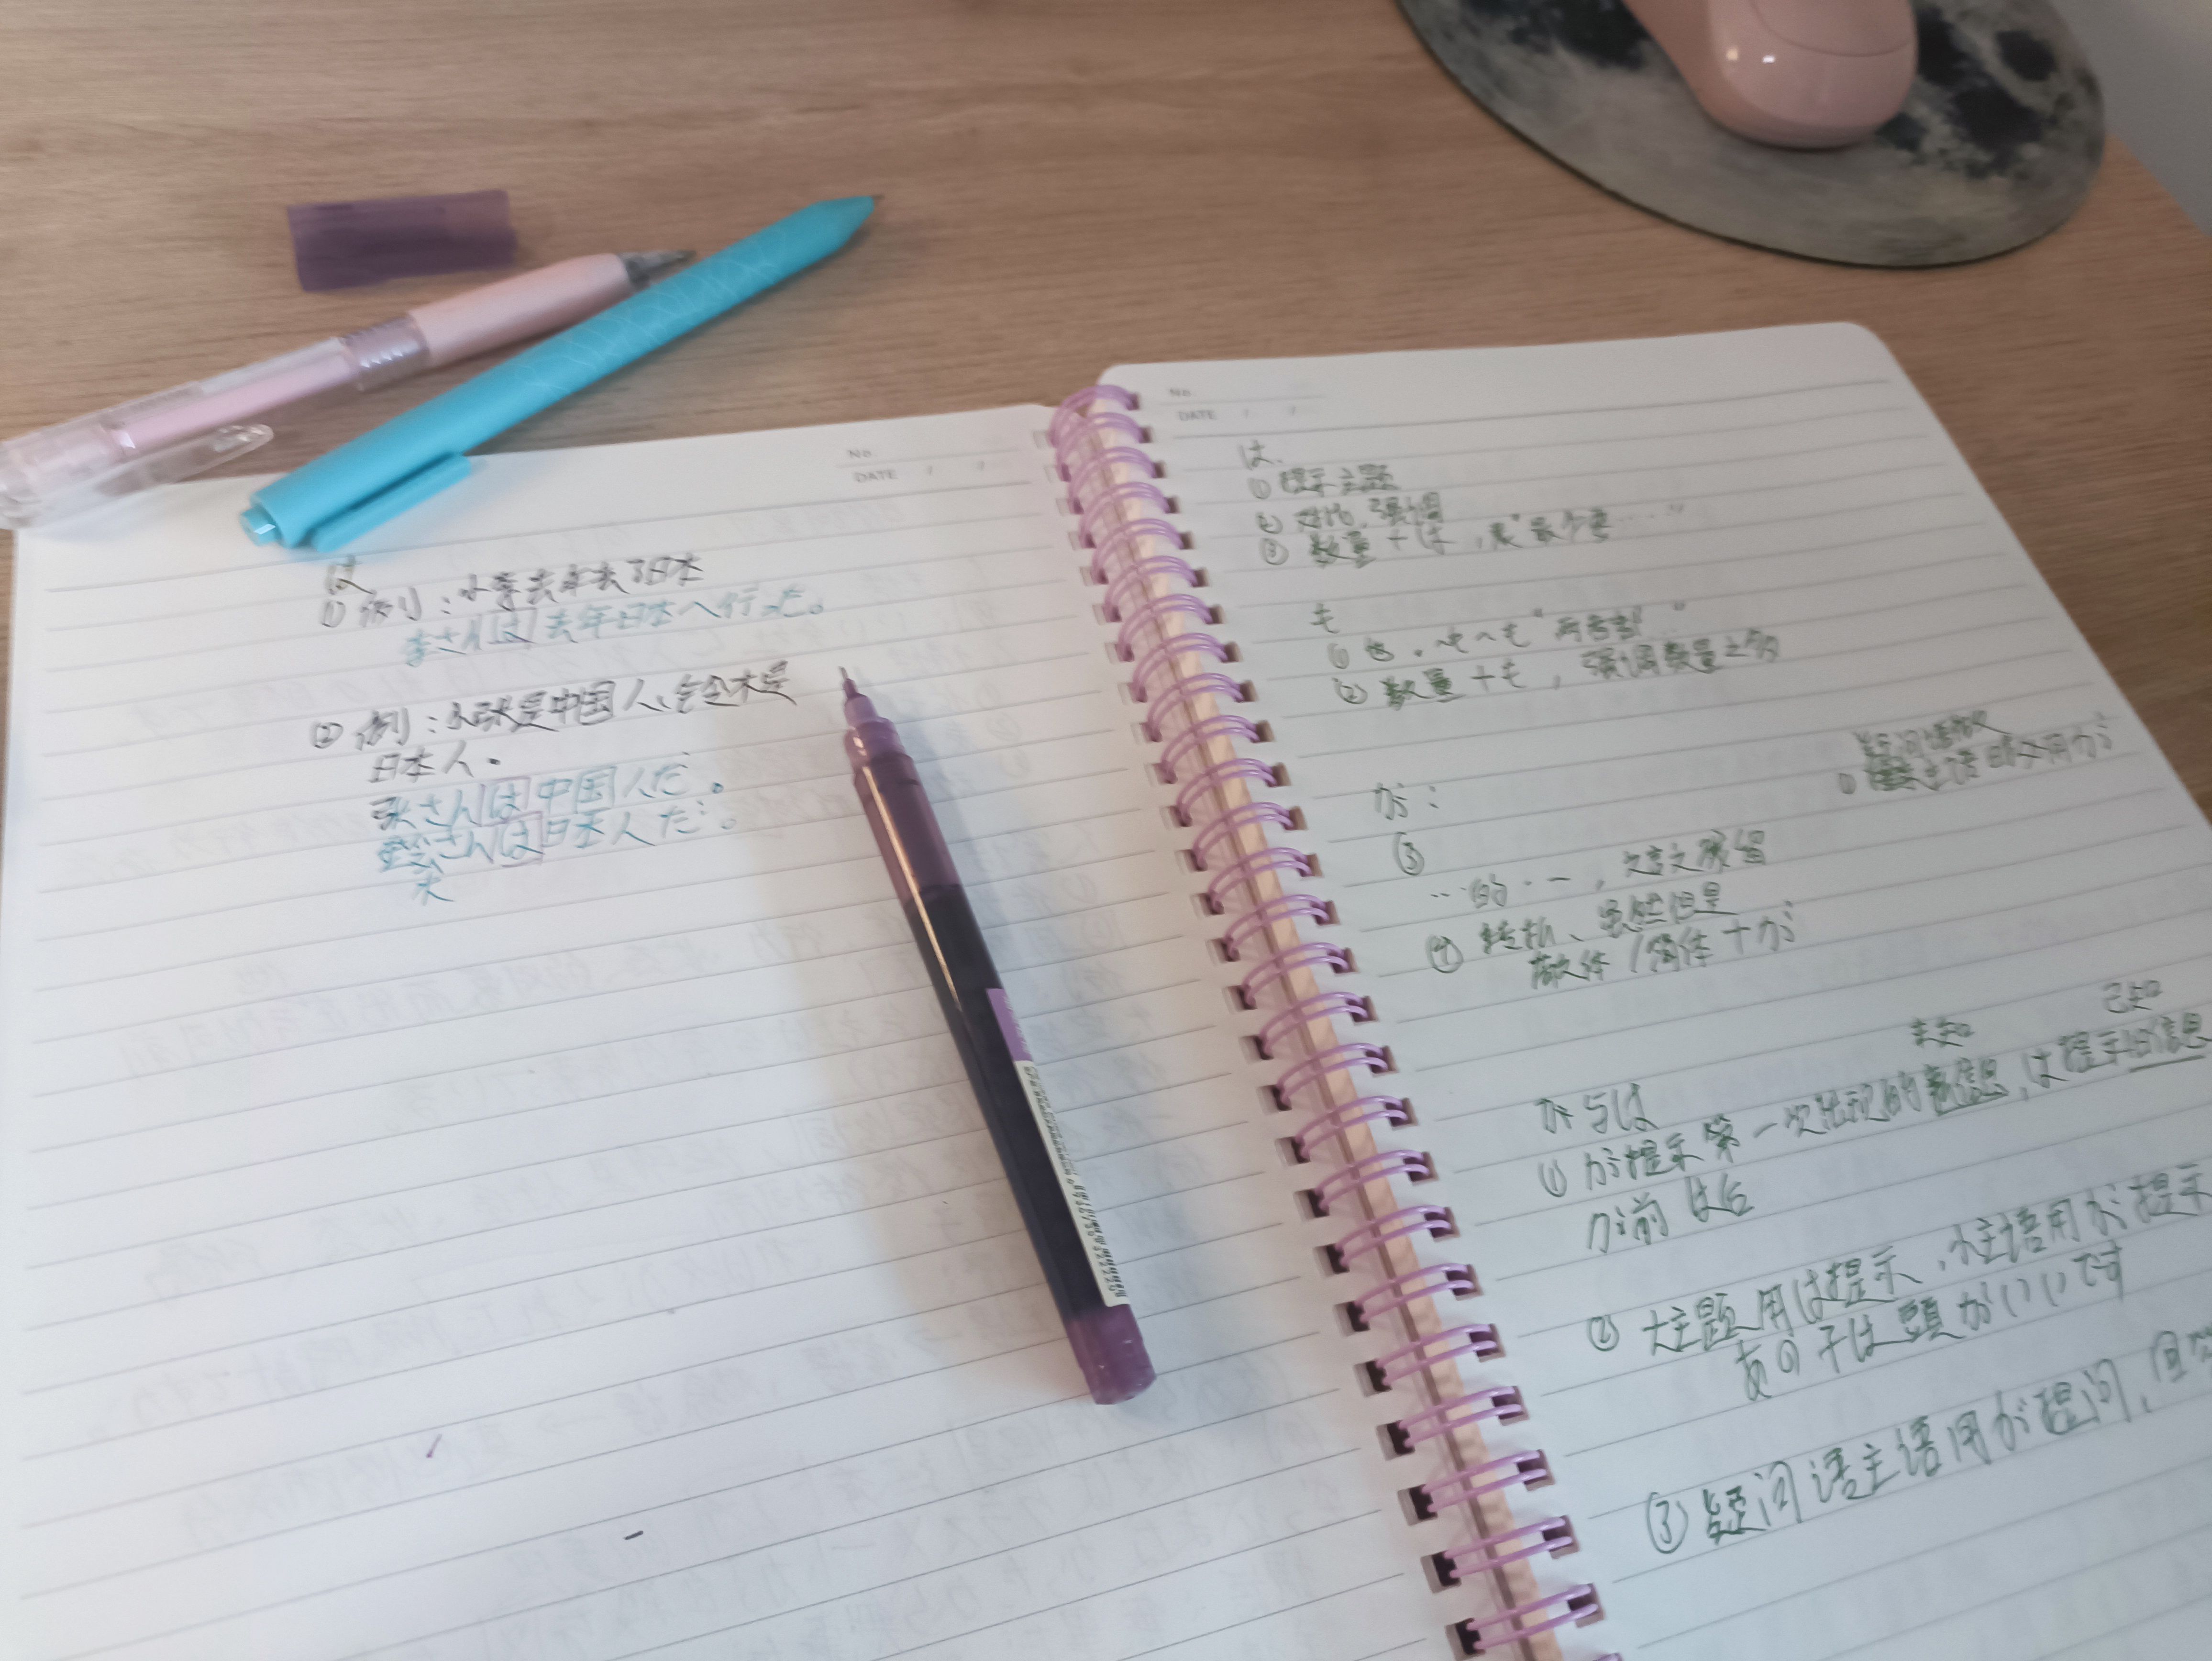 No.
DATE / /
は
① 例：小李去年去了日本
李さんは去年日本へ行った。
② 例：小张是中国人、铃木是
日本人。
张さんは中国人だ。
さんは日本人だ。
木
No.
DATE / /
は.
① 提示主题
② 对比,强调
③ 数量+は,表"最少要……"
も
① 也,~も~も"两者都"
② 数量+も,强调数量之多
が：
疑问语做
① 主语时必用が
③
…的…,文言文残留
④ 转折、虽然但是
敬体/简体+が
未知 已知
が与は
① が提示第一次出现的新信息,は提示旧信息
が前は后
② 大主题用は提示,小主语用が提示
あの子は頭がいいです
③ 疑问语主语用が提问,回